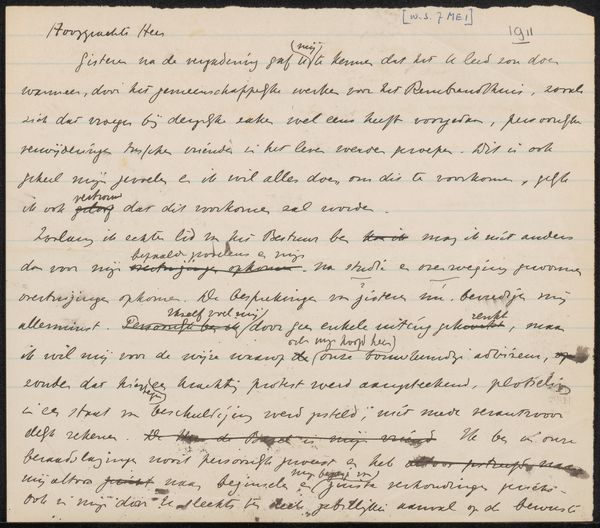 [W.S. 7 MEI]
1911
Hooggeachte Heer
Gisteren na de vergadering gaf U mij te kennen dat het U leed zou doen
wanneer, door het gemeenschappelijke werken voor het Rembrandthuis, zooals
zich dat vroeger bij dergelijke zaken wel eens heeft voorgedaan, persoonlijke
verwijderingen tusschen vrienden in het leven werden geroepen. Dit is ook
geheel mijn gevoelen en ik wil alles doen om dit te voorkomen, gelijk
ik ook vertrouw dat dit voorkomen zal worden.
Zoolang ik echter lid van het Bestuur ben mag ik niet anders
dan voor mijn bepaalde en mijn na studie en overweging gewonnen
overtuiging opkomen. De besprekingen van gisteren bevredigen mij
allerminst. door geen enkele uiting gekrenkt, maar
ik wil mij voor de wijze waarop ook mij onze bouwkundige adviseur,
zonder dat hiertegen een krachtig protest werd aangeteekend, plotseling
in een staat van beschuldiging werd gesteld, niet mede verantwoor
delijk rekenen. De Heer de Bazel is mijn vriend Ik ben in onze
beraadslagingen nooit persoonlijk geweest en heb
mij altoos naar beginselen en juiste verhoudingen gericht.
Ook is mij door U slechts ten deele gebillijkte aanval op de bewuste